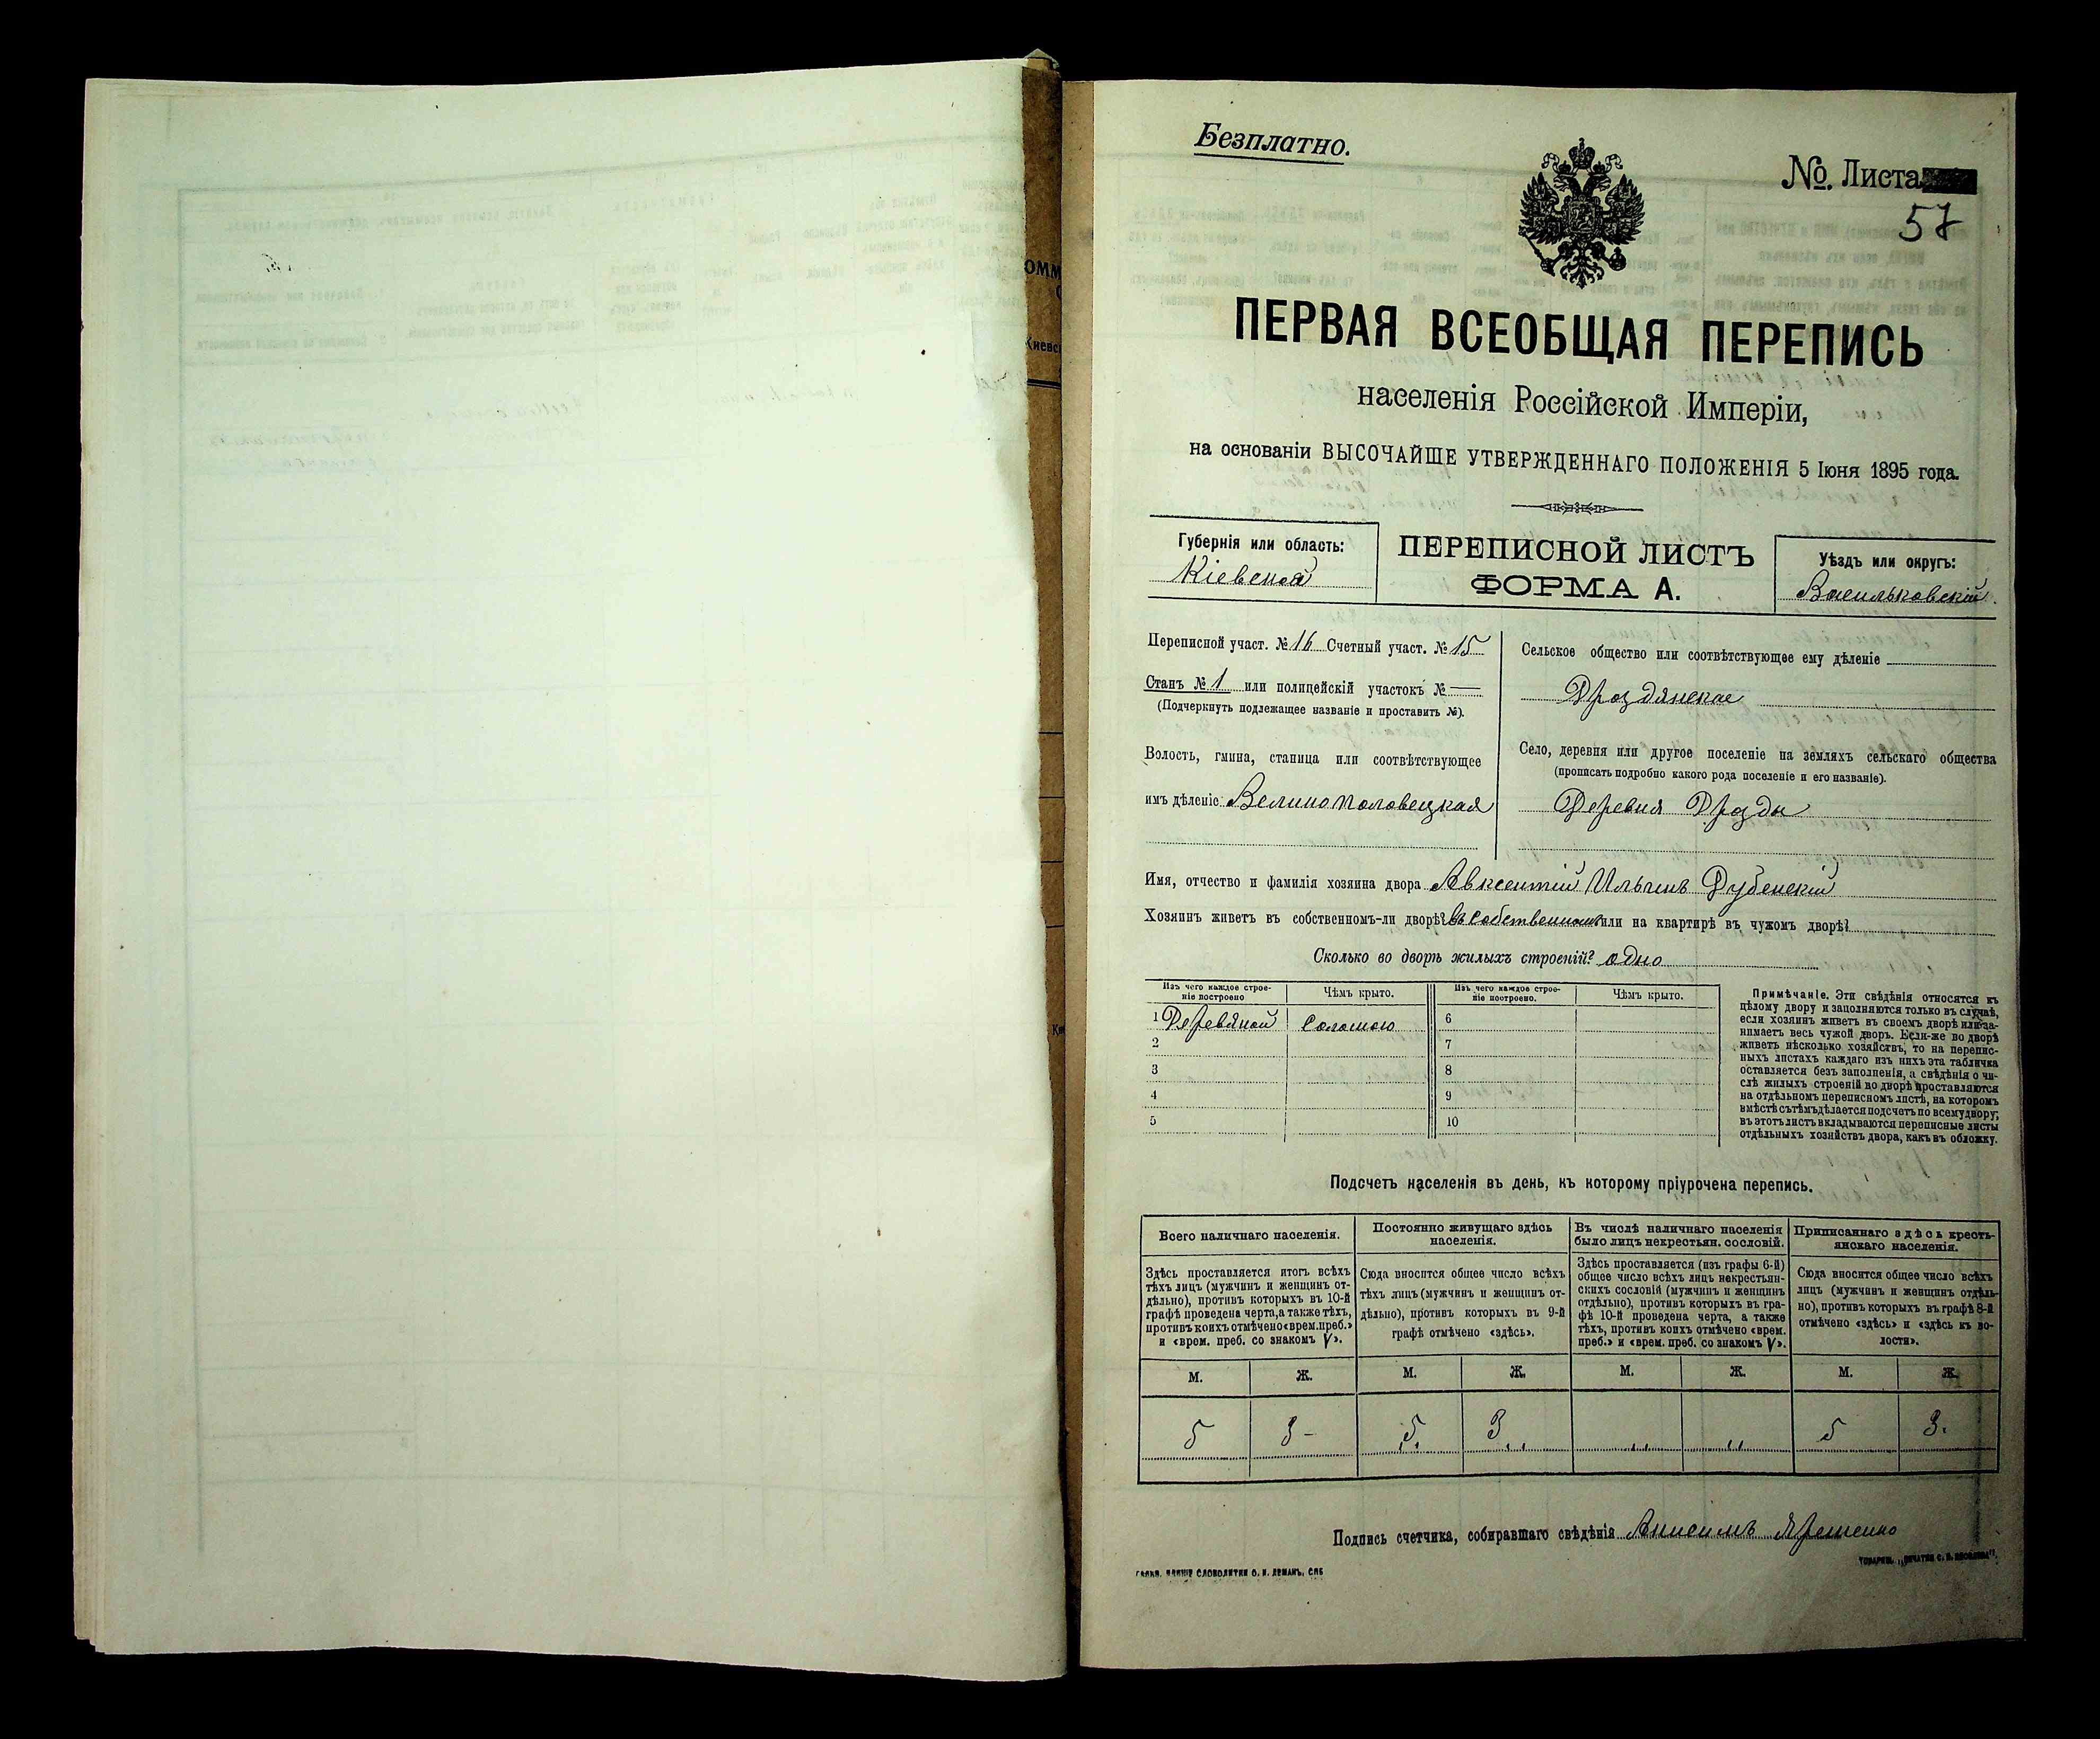 Безплатно.
No. Листа
57
ПЕРВАЯ ВСЕОБЩАЯ ПЕРЕПИСЬ
населенія Россійской Имперіи,
на основаніи ВЫСОЧАЙШЕ УТВЕРЖДЕННАГО ПОЛОЖЕНІЯ 5 Іюня 1895 года.
Губернія или область:
Кіевская
ПЕРЕПИСНОЙ ЛИСТЪ
ФОРМА А.
Уѣздъ или округъ:
Васильковскій
Переписной участ. № 16 Счетный участ. № 15
Станъ № 1 или полицейскій участокъ № —
(Подчеркнуть подлежащее названіе и проставить №).
Волость, гмина, станица или соотвѣтствующее
имъ дѣленіе Великополовецкая
Сельское общество или соотвѣтствующее ему дѣленіе
Дроздянское
Село, деревня или другое поселеніе на земляхъ сельскаго общества
(прописать подробно какого рода поселеніе и его названіе).
Деревня Дрозды
Имя, отчество и фамилія хозяина двора Авксентій Ильинъ Дубенскій
Хозяинъ живетъ въ собственномъ-ли дворѣ? Въ собственномъ или на квартирѣ въ чужомъ дворѣ?
Сколько во дворѣ жилыхъ строеній? одно
Изъ чего каждое строе-
ніе построено
Чѣмъ крыто.
Изъ чего каждое строе-
ніе построено.
Чѣмъ крыто.
1 Деревяной Соломою 6
2 7
3 8
4 9
5 10
Примѣчаніе. Эти свѣдѣнія относятся къ
цѣлому двору и заполняются только въ случаѣ,
если хозяинъ живетъ въ своемъ дворѣ или за-
нимаетъ весь чужой дворъ. Если-же во дворѣ
живетъ нѣсколько хозяйствъ, то на перепис-
ныхъ листахъ каждаго изъ нихъ эта табличка
оставляется безъ заполненія, а свѣдѣнія о чи-
слѣ жилыхъ строеній во дворѣ проставляются
на отдѣльномъ переписномъ листѣ, на которомъ
вмѣстѣ съ тѣмъ дѣлается подсчетъ по всему двору;
въ этотъ листъ вкладываются переписные листы
отдѣльныхъ хозяйствъ двора, какъ въ обложку.
Подсчетъ населенія въ день, къ которому пріурочена перепись.
Всего наличнаго населенія.
Постоянно живущаго здѣсь
населенія.
Въ числѣ наличнаго населенія
было лицъ некрестьян. сословій.
Приписаннаго здѣсь кресть-
янскаго населенія.
Здѣсь проставляется итогъ всѣхъ
тѣхъ лицъ (мужчинъ и женщинъ от-
дѣльно), противъ которыхъ въ 10-й
графѣ проведена черта, а также тѣхъ,
противъ коихъ отмѣчено «врем. преб.»
и «врем. преб. со знакомъ V».
Сюда вносится общее число всѣхъ
тѣхъ лицъ (мужчинъ и женщинъ от-
дѣльно), противъ которыхъ въ 9-й
графѣ отмѣчено «здѣсь».
Здѣсь проставляется (изъ графы 6-й)
общее число всѣхъ лицъ некрестьян-
скихъ сословій (мужчинъ и женщинъ
отдѣльно), противъ которыхъ въ гра-
фѣ 10-й проведена черта, а также
тѣхъ, противъ коихъ отмѣчено «врем.
преб.» и «врем. преб. со знакомъ V».
Сюда вносится общее число всѣхъ
лицъ (мужчинъ и женщинъ отдѣль-
но), противъ которыхъ въ графѣ 8-й
отмѣчено «здѣсь» и «здѣсь къ во-
лости».
М. Ж. М. Ж. М. Ж. М. Ж.
5 3 - 5. 3 „ „ „ 5 3.
Подпись счетчика, собиравшаго свѣдѣнія Анисимъ Ярешенко
СЛОВОЛИТНИ О. И. ЛЕМАНЪ, СПБ